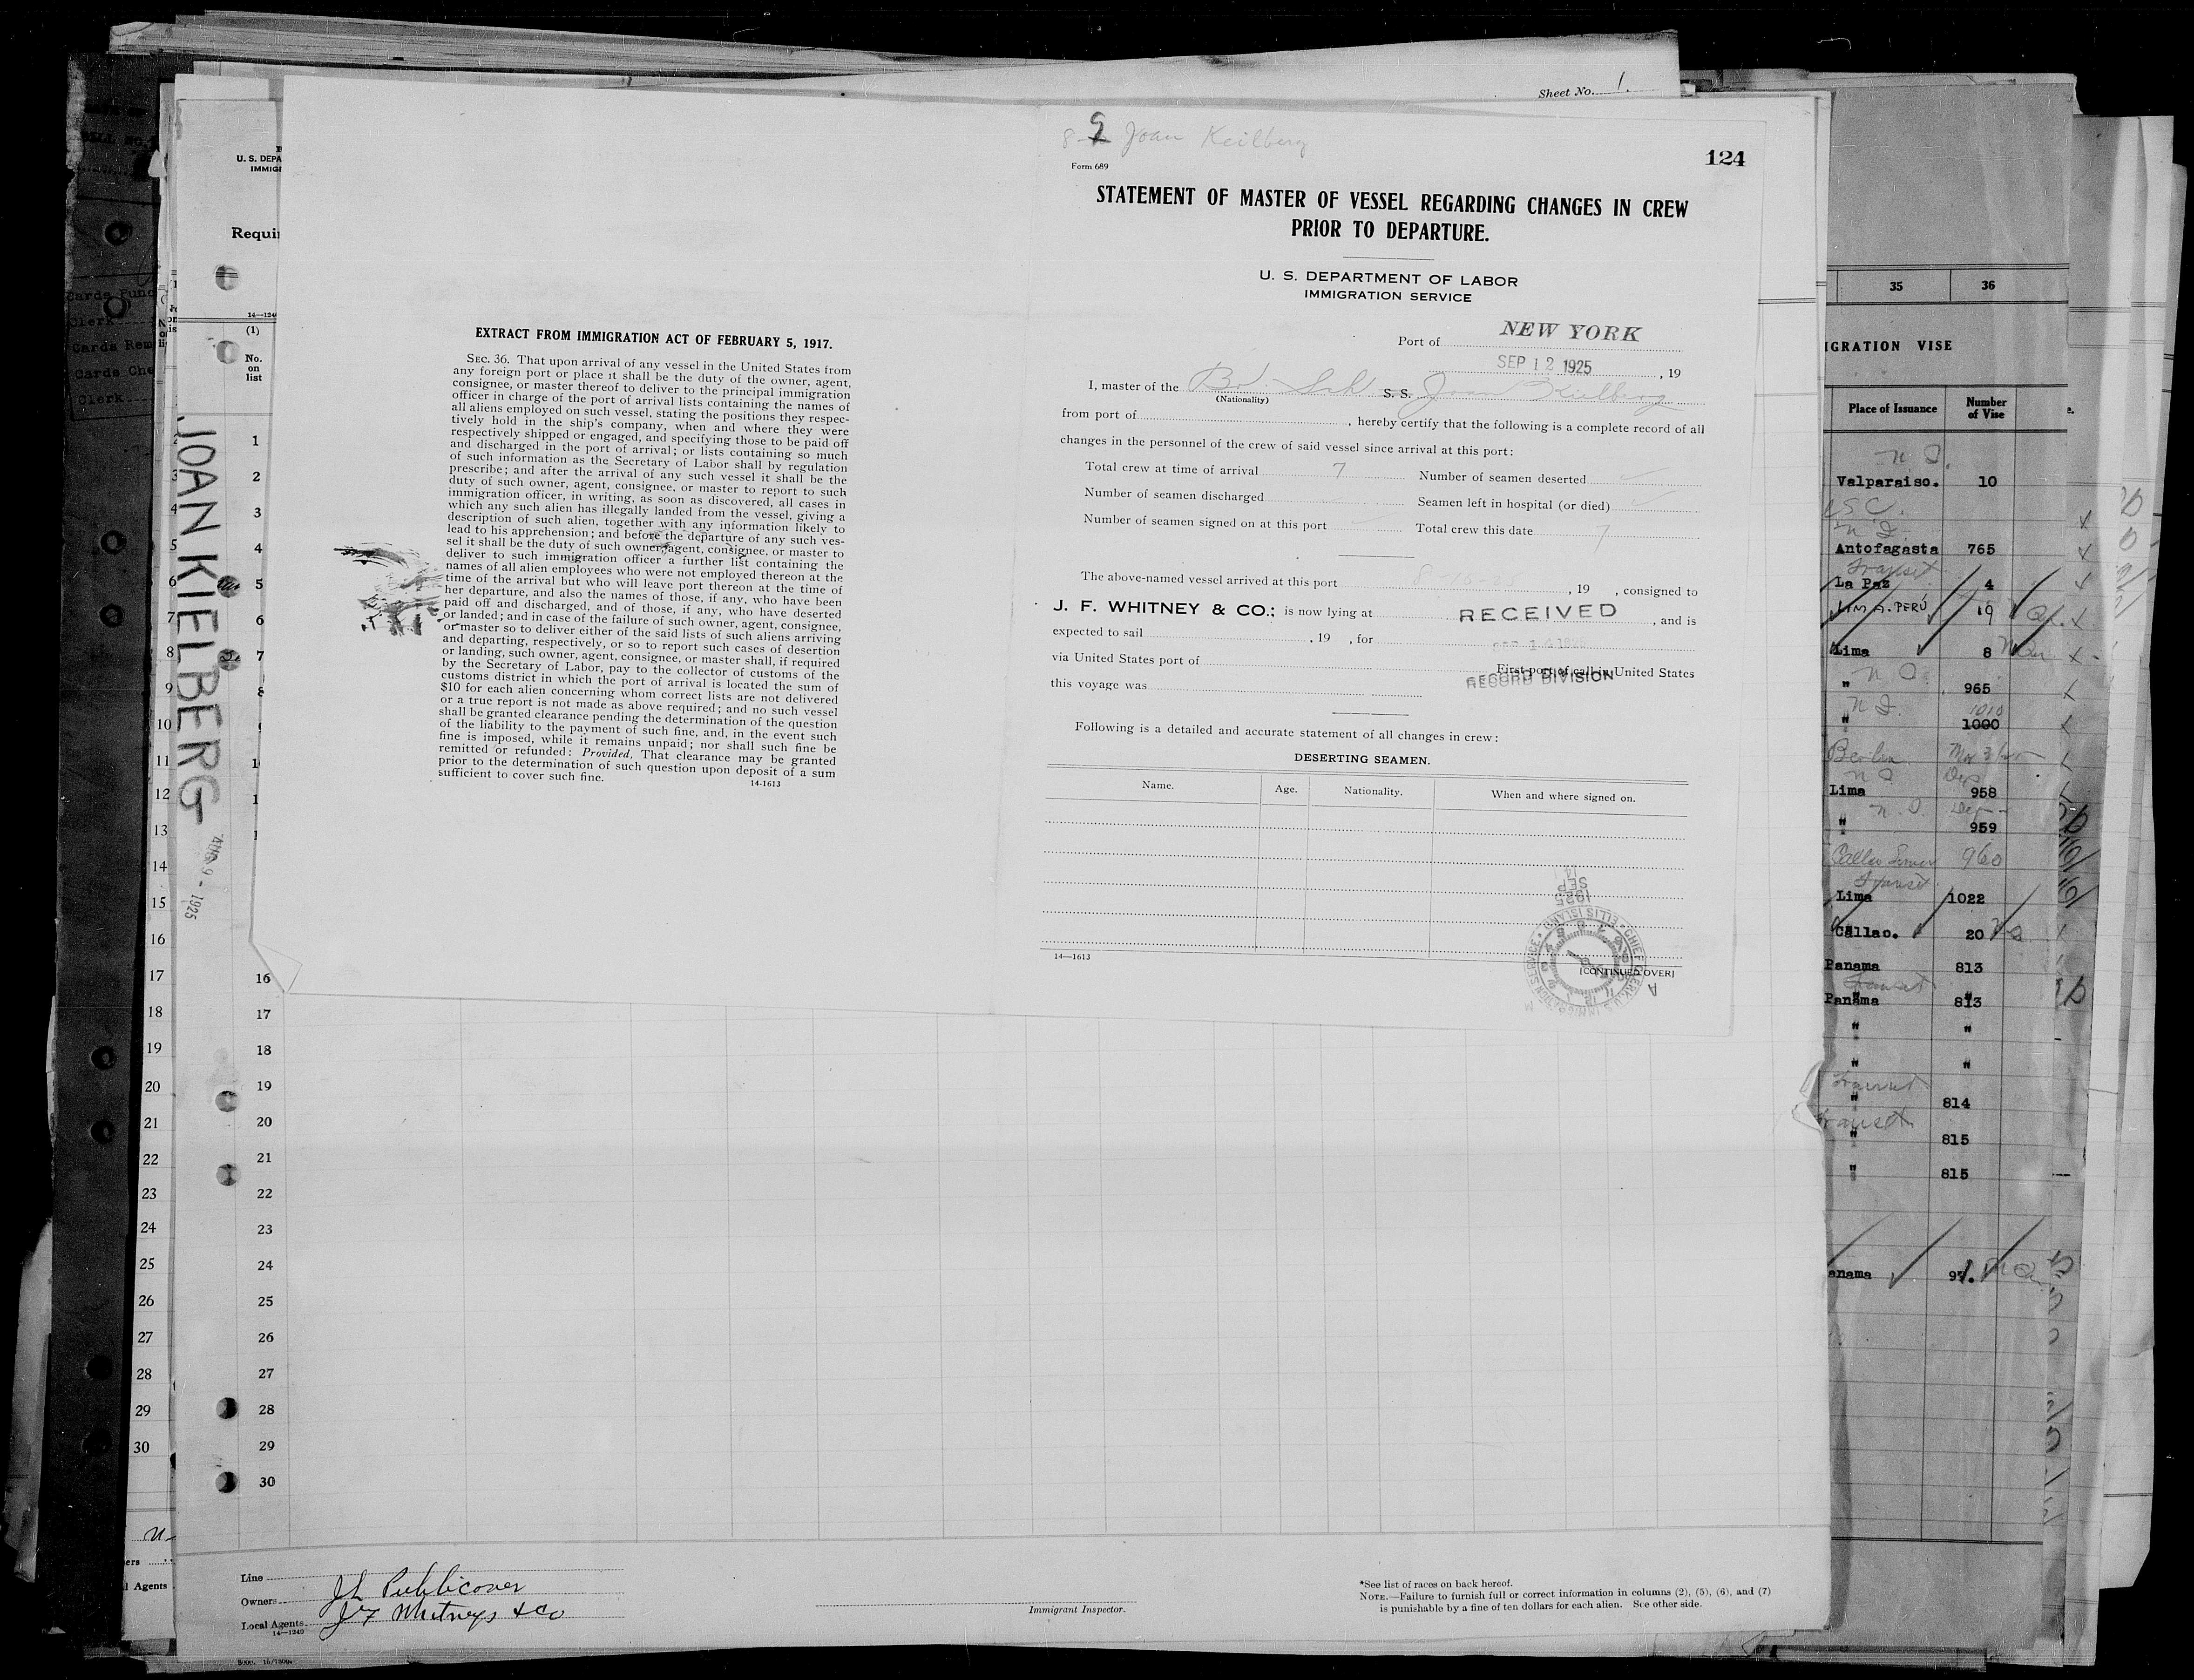 Sheet No. 1.
8-9 Joan Keilberg
Form 689
124
STATEMENT OF MASTER OF VESSEL REGARDING CHANGES IN CREW
PRIOR TO DEPARTURE.
U. S. DEPARTMENT OF LABOR
IMMIGRATION SERVICE
Port of NEW YORK
SEP 12 1925, 19
I, master of the Br. Sch S. S. Joan Kielberg
(Nationality)
from port of, hereby certify that the following is a complete record of all
changes in the personnel of the crew of said vessel since arrival at this port:
Total crew at time of arrival 7 Number of seamen deserted
Number of seamen discharged Seamen left in hospital (or died)
Number of seamen signed on at this port Total crew this date 7
The above-named vessel arrived at this port, 19 , consigned to
J. F. WHITNEY & CO.; is now lying at RECEIVED, and is
expected to sail, 19 , for
via United States port of First port of call in United States
this voyage was RECORD DIVISION
Following is a detailed and accurate statement of all changes in crew:
DESERTING SEAMEN.
Name. Age. Nationality. When and where signed on.
SEP 14
1925
CHIEF CLERK U.S. IMMIGRATION SERVICE ELLIS ISLAND
14—1613
[CONTINUED OVER]
EXTRACT FROM IMMIGRATION ACT OF FEBRUARY 5, 1917.
SEC. 36. That upon arrival of any vessel in the United States from
any foreign port or place it shall be the duty of the owner, agent,
consignee, or master thereof to deliver to the principal immigration
officer in charge of the port of arrival lists containing the names of
all aliens employed on such vessel, stating the positions they respec-
tively hold in the ship's company, when and where they were
respectively shipped or engaged, and specifying those to be paid off
and discharged in the port of arrival; or lists containing so much
of such information as the Secretary of Labor shall by regulation
prescribe; and after the arrival of any such vessel it shall be the
duty of such owner, agent, consignee, or master to report to such
immigration officer, in writing, as soon as discovered, all cases in
which any such alien has illegally landed from the vessel, giving a
description of such alien, together with any information likely to
lead to his apprehension; and before the departure of any such ves-
sel it shall be the duty of such owner, agent, consignee, or master to
deliver to such immigration officer a further list containing the
names of all alien employees who were not employed thereon at the
time of the arrival but who will leave port thereon at the time of
her departure, and also the names of those, if any, who have been
paid off and discharged, and of those, if any, who have deserted
or landed; and in case of the failure of such owner, agent, consignee,
or master so to deliver either of the said lists of such aliens arriving
and departing, respectively, or so to report such cases of desertion
or landing, such owner, agent, consignee, or master shall, if required
by the Secretary of Labor, pay to the collector of customs of the
customs district in which the port of arrival is located the sum of
$10 for each alien concerning whom correct lists are not delivered
or a true report is not made as above required; and no such vessel
shall be granted clearance pending the determination of the question
of the liability to the payment of such fine, and, in the event such
fine is imposed, while it remains unpaid; nor shall such fine be
remitted or refunded: Provided, That clearance may be granted
prior to the determination of such question upon deposit of a sum
sufficient to cover such fine.
14-1613
U. S. DEPA
IMMIGR
Requir
(1)
No.
on
list
JOAN KIELBERG
AUG 9 - 1925
1
2
3
4
5
6
7
16
17
18
19
20
21
22
23
24
25
26
27
28
29
30
Line
Owners J L Publicover
Local Agents J F Whitneys & Co
14—1240
Immigrant Inspector.
*See list of races on back hereof.
NOTE.—Failure to furnish full or correct information in columns (2), (5), (6), and (7)
is punishable by a fine of ten dollars for each alien. See other side.
3
4
5
6
7
8
9
10
11
12
13
14
15
16
17
18
19
20
21
22
23
24
25
26
27
28
29
30
Agents
Cards Fund
Clerk
Cards Rem
Cards Che
Clerk
35 36
IGRATION VISE
Place of Issuance Number of Vise
Valparaiso. 10
Antofagasta 765
Transit
La Paz 4
LIMA. PERÚ 19
Lima 8
" 965
1010
" 1000
Berlin
Lima 958
" 959
960
Transit
Lima 1022
Callao. 20
Panama 813
Transit
Panama 813
" "
" "
Transit
" 814
Transit
" 815
" 815
anama